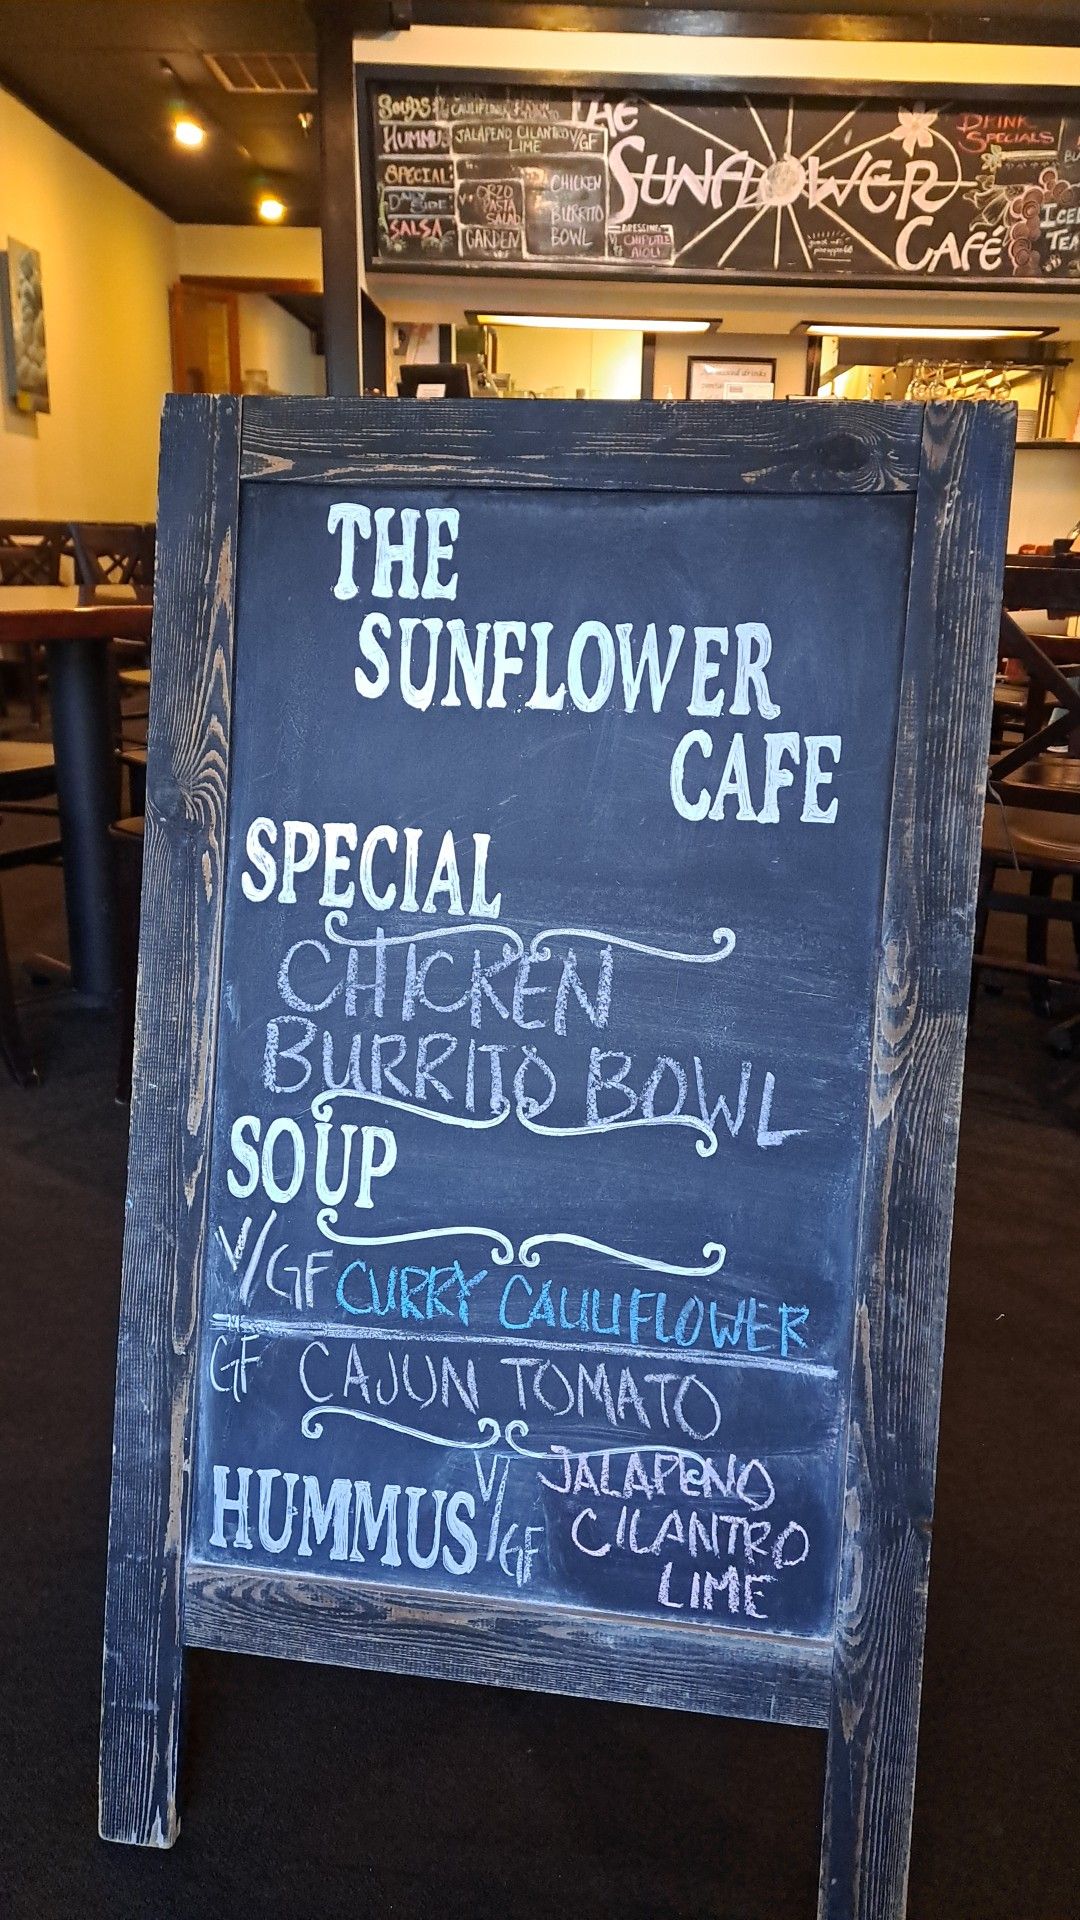 SOUPS
CAULIFLOWER
CAJUN
HUMMUS
JALAPENO CILANTRO V/GF
LIME
SPECIAL:
CHICKEN
BURRITO
BOWL
DAILY SIDE:
ORZO
PASTA
SALAD
SALSA
GARDEN
DRESSING:
CHIPOTLE
AIOLI
THE
SUNFLOWER
CAFÉ
DRINK
SPECIALS
ICED
TEA
THE
SUNFLOWER
CAFE
SPECIAL
CHICKEN
BURRITO BOWL
SOUP
V/GF CURRY CAULIFLOWER
GF CAJUN TOMATO
HUMMUS V/GF JALAPENO
CILANTRO
LIME